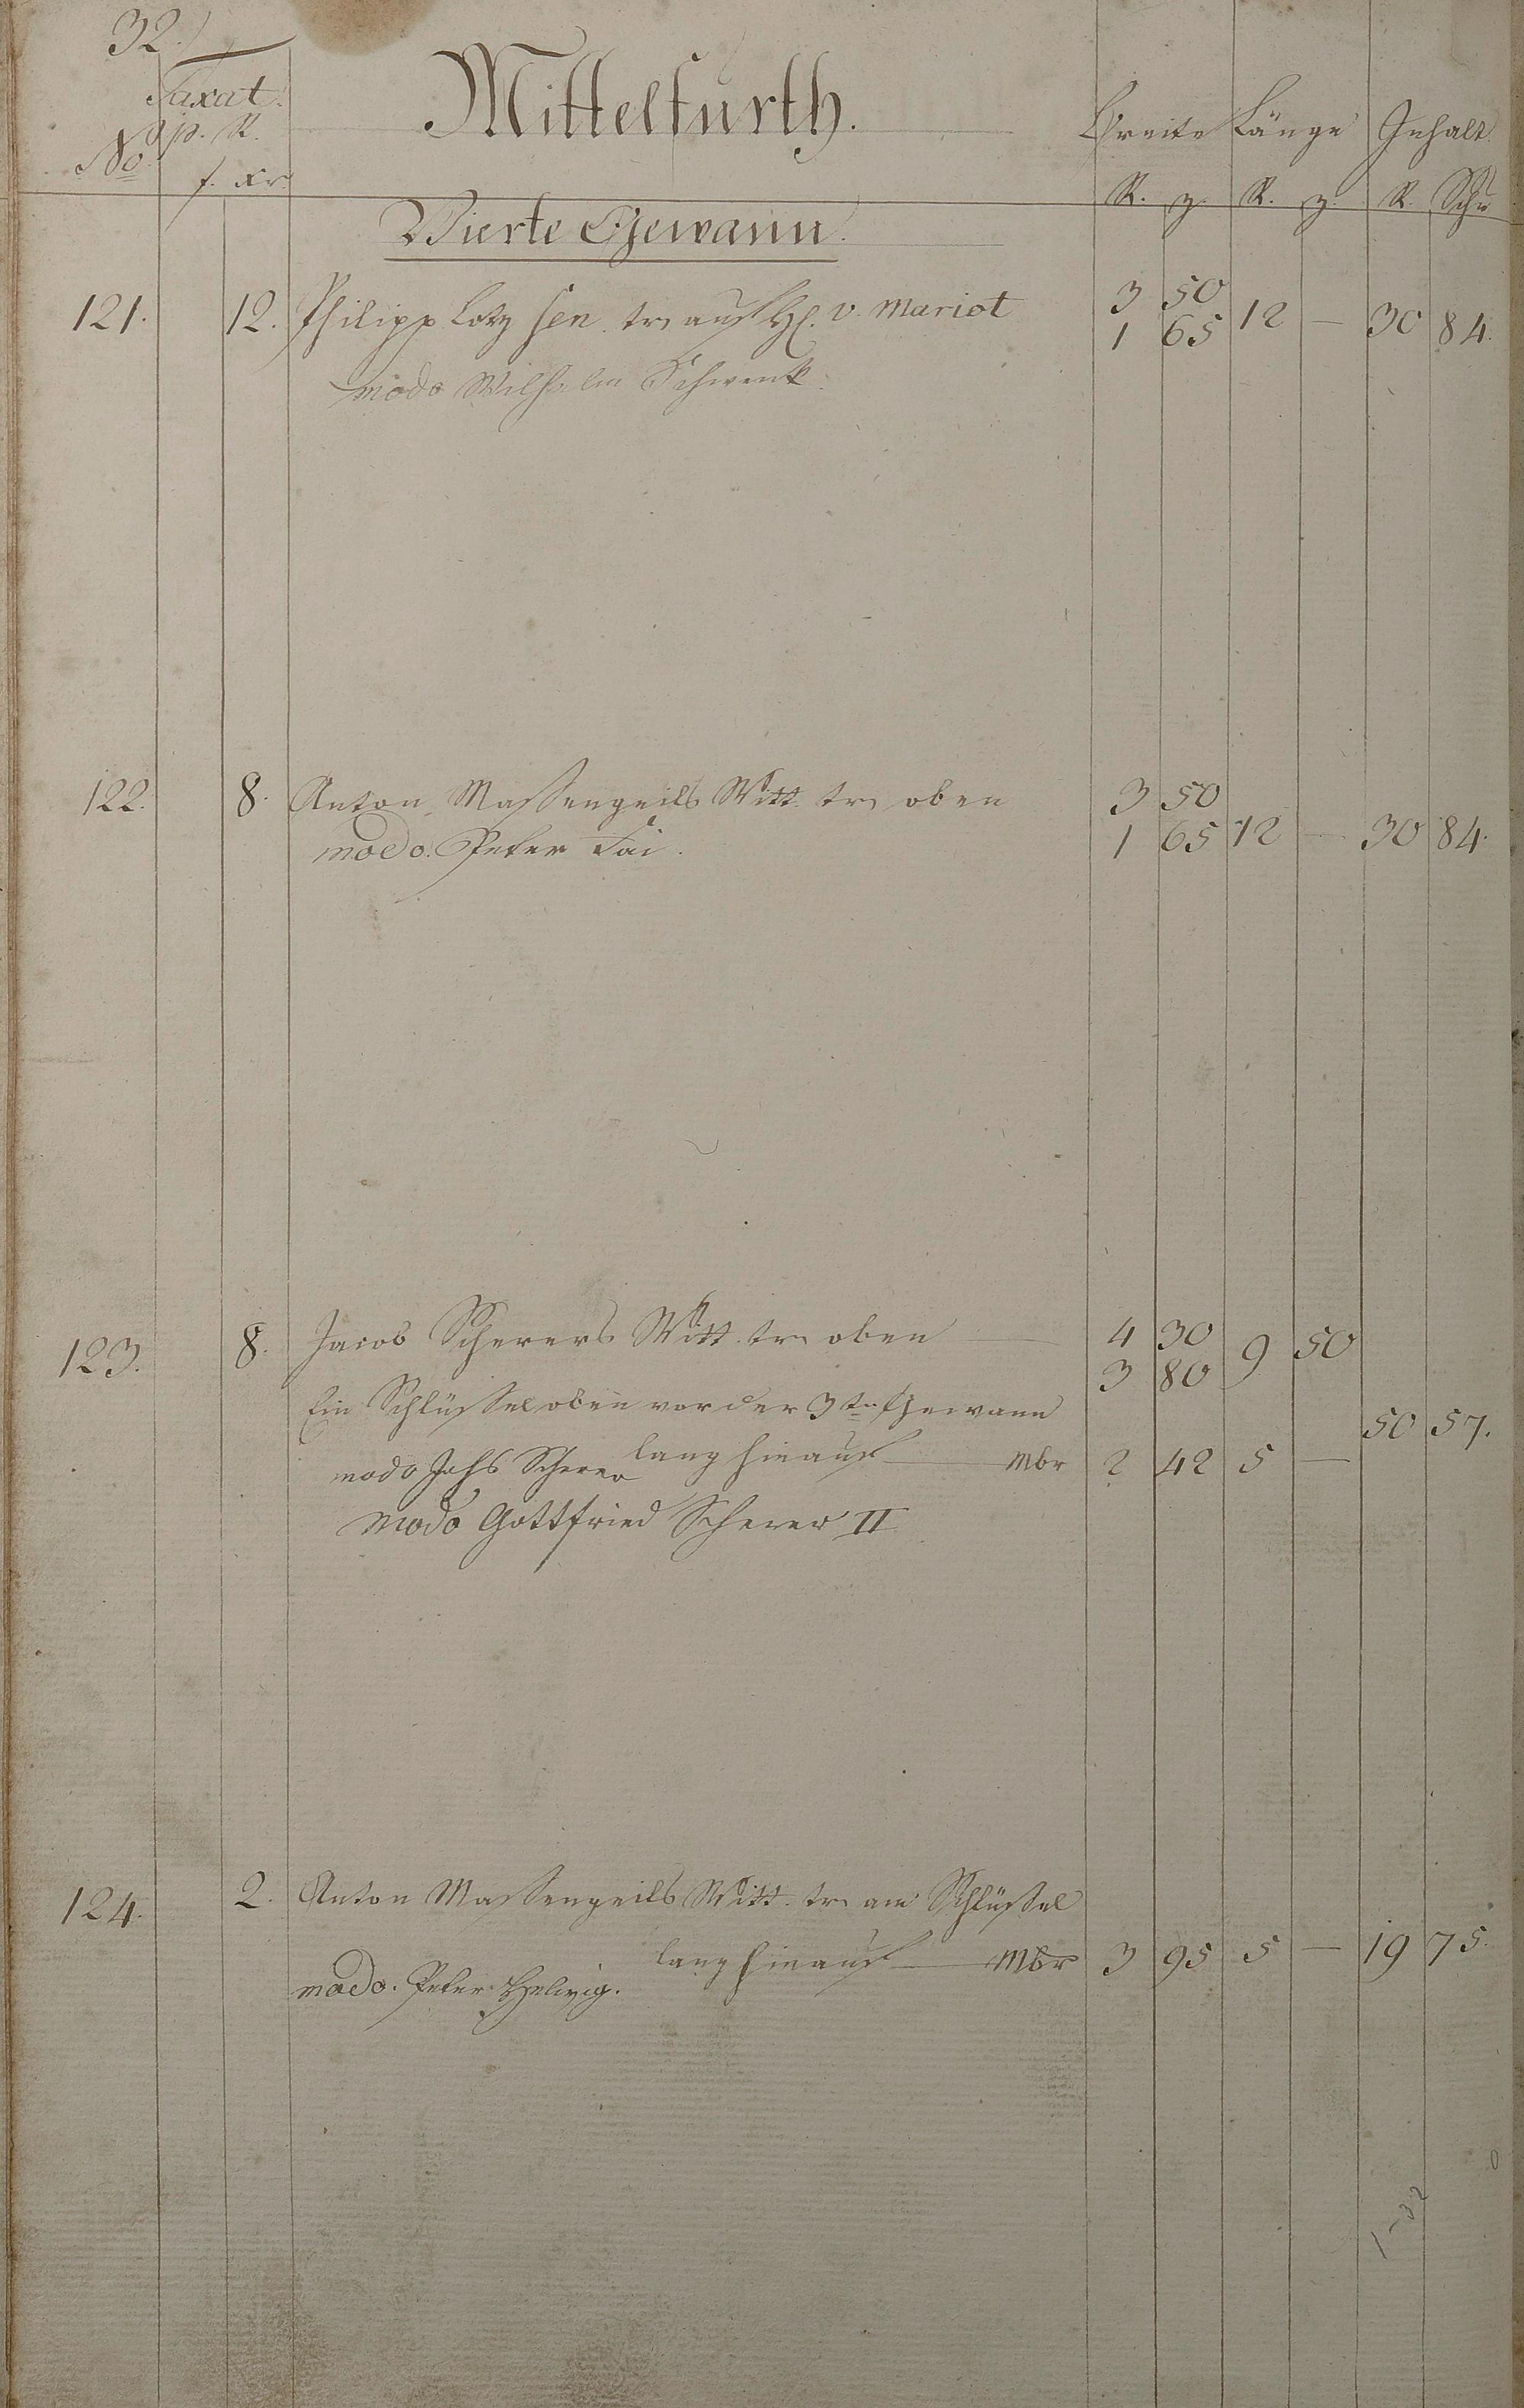 32.
Taxat.
p. R.
No.
f. xr.
Mittelfurth.
Breite Länge Inhalt
R. z. R. z. R. Schu
Vierte Gewann.
121. 12. Philipp Lotz sen. trs auf H. v. Mariot 3 50 12 — 30 84.
1 65
modo Wilhelm Schwenk.
122. 8. Anton Massengeils Witt. trs oben 3 50
modo. Peter Fai. 1 65 12 — 30 84.
123. 8. Jacob Scherers Witt. trs oben — 4 30 9 50
3 80
Ein Schlüssel oben vor der 3ten Gewann 50 57.
lang hinauf — Mbr 2 42 5 —
modo Johs Scherer
modo Gottfried Scherer II
124. 2. Anton Massengeils Witt. trs am Schlüssel
lang hinauf — Mbr 3 95 5 — 19 75.
modo. Peter Helwig.